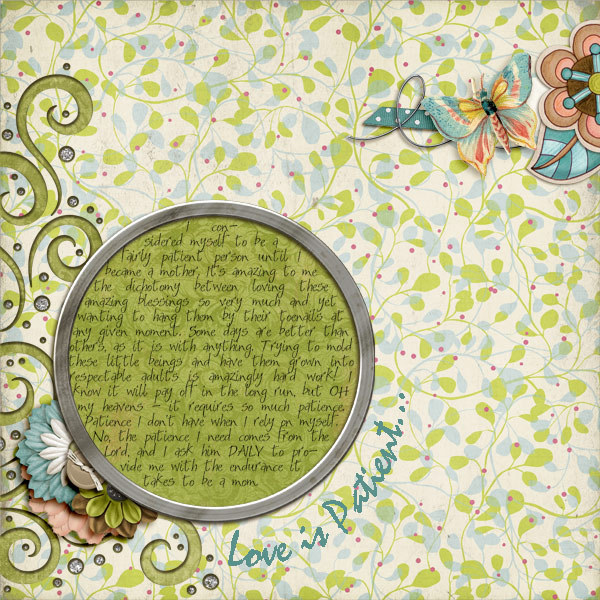 I con-
sidered myself to be a
fairly patient person until I
became a mother. It's amazing to me
the dichotomy between loving these
amazing blessings so very much and yet
wanting to hang them by their toenails at
any given moment. Some days are better than
others, as it is with anything. Trying to mold
these little beings and have them grown into
respectable adults is amazingly hard work!
Know it will pay off in the long run, but OH
my heavens - it requires so much patience.
Patience I don't have when I rely on myself.
No, the patience I need comes from the
Lord, and I ask him DAILY to pro-
vide me with the endurance it
takes to be a mom.
Love is Patient...